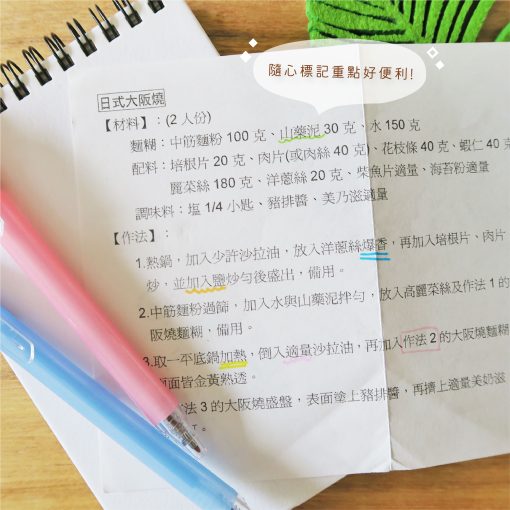 隨心標記重點好便利!
日式大阪燒
【材料】:(2 人份)
麵糊:中筋麵粉 100 克、山藥泥 30 克、水 150 克
配料:培根片 20 克、肉片(或肉絲 40 克)、花枝條 40 克、蝦仁 40 克
麗菜絲 180 克、洋蔥絲 20 克、柴魚片適量、海苔粉適量
調味料:塩 1/4 小匙、豬排醬、美乃滋適量
【作法】:
1.熱鍋,加入少許沙拉油,放入洋蔥絲爆香,再加入培根片、肉片
炒,並加入鹽炒勻後盛出,備用。
2.中筋麵粉過篩,加入水與山藥泥拌勻,放入高麗菜絲及作法 1 的
阪燒麵糊,備用。
3.取一平底鍋加熱,倒入適量沙拉油,再加入作法 2 的大阪燒麵糊
面皆金黃熟透。
法 3 的大阪燒盛盤,表面塗上豬排醬,再擠上適量美奶滋